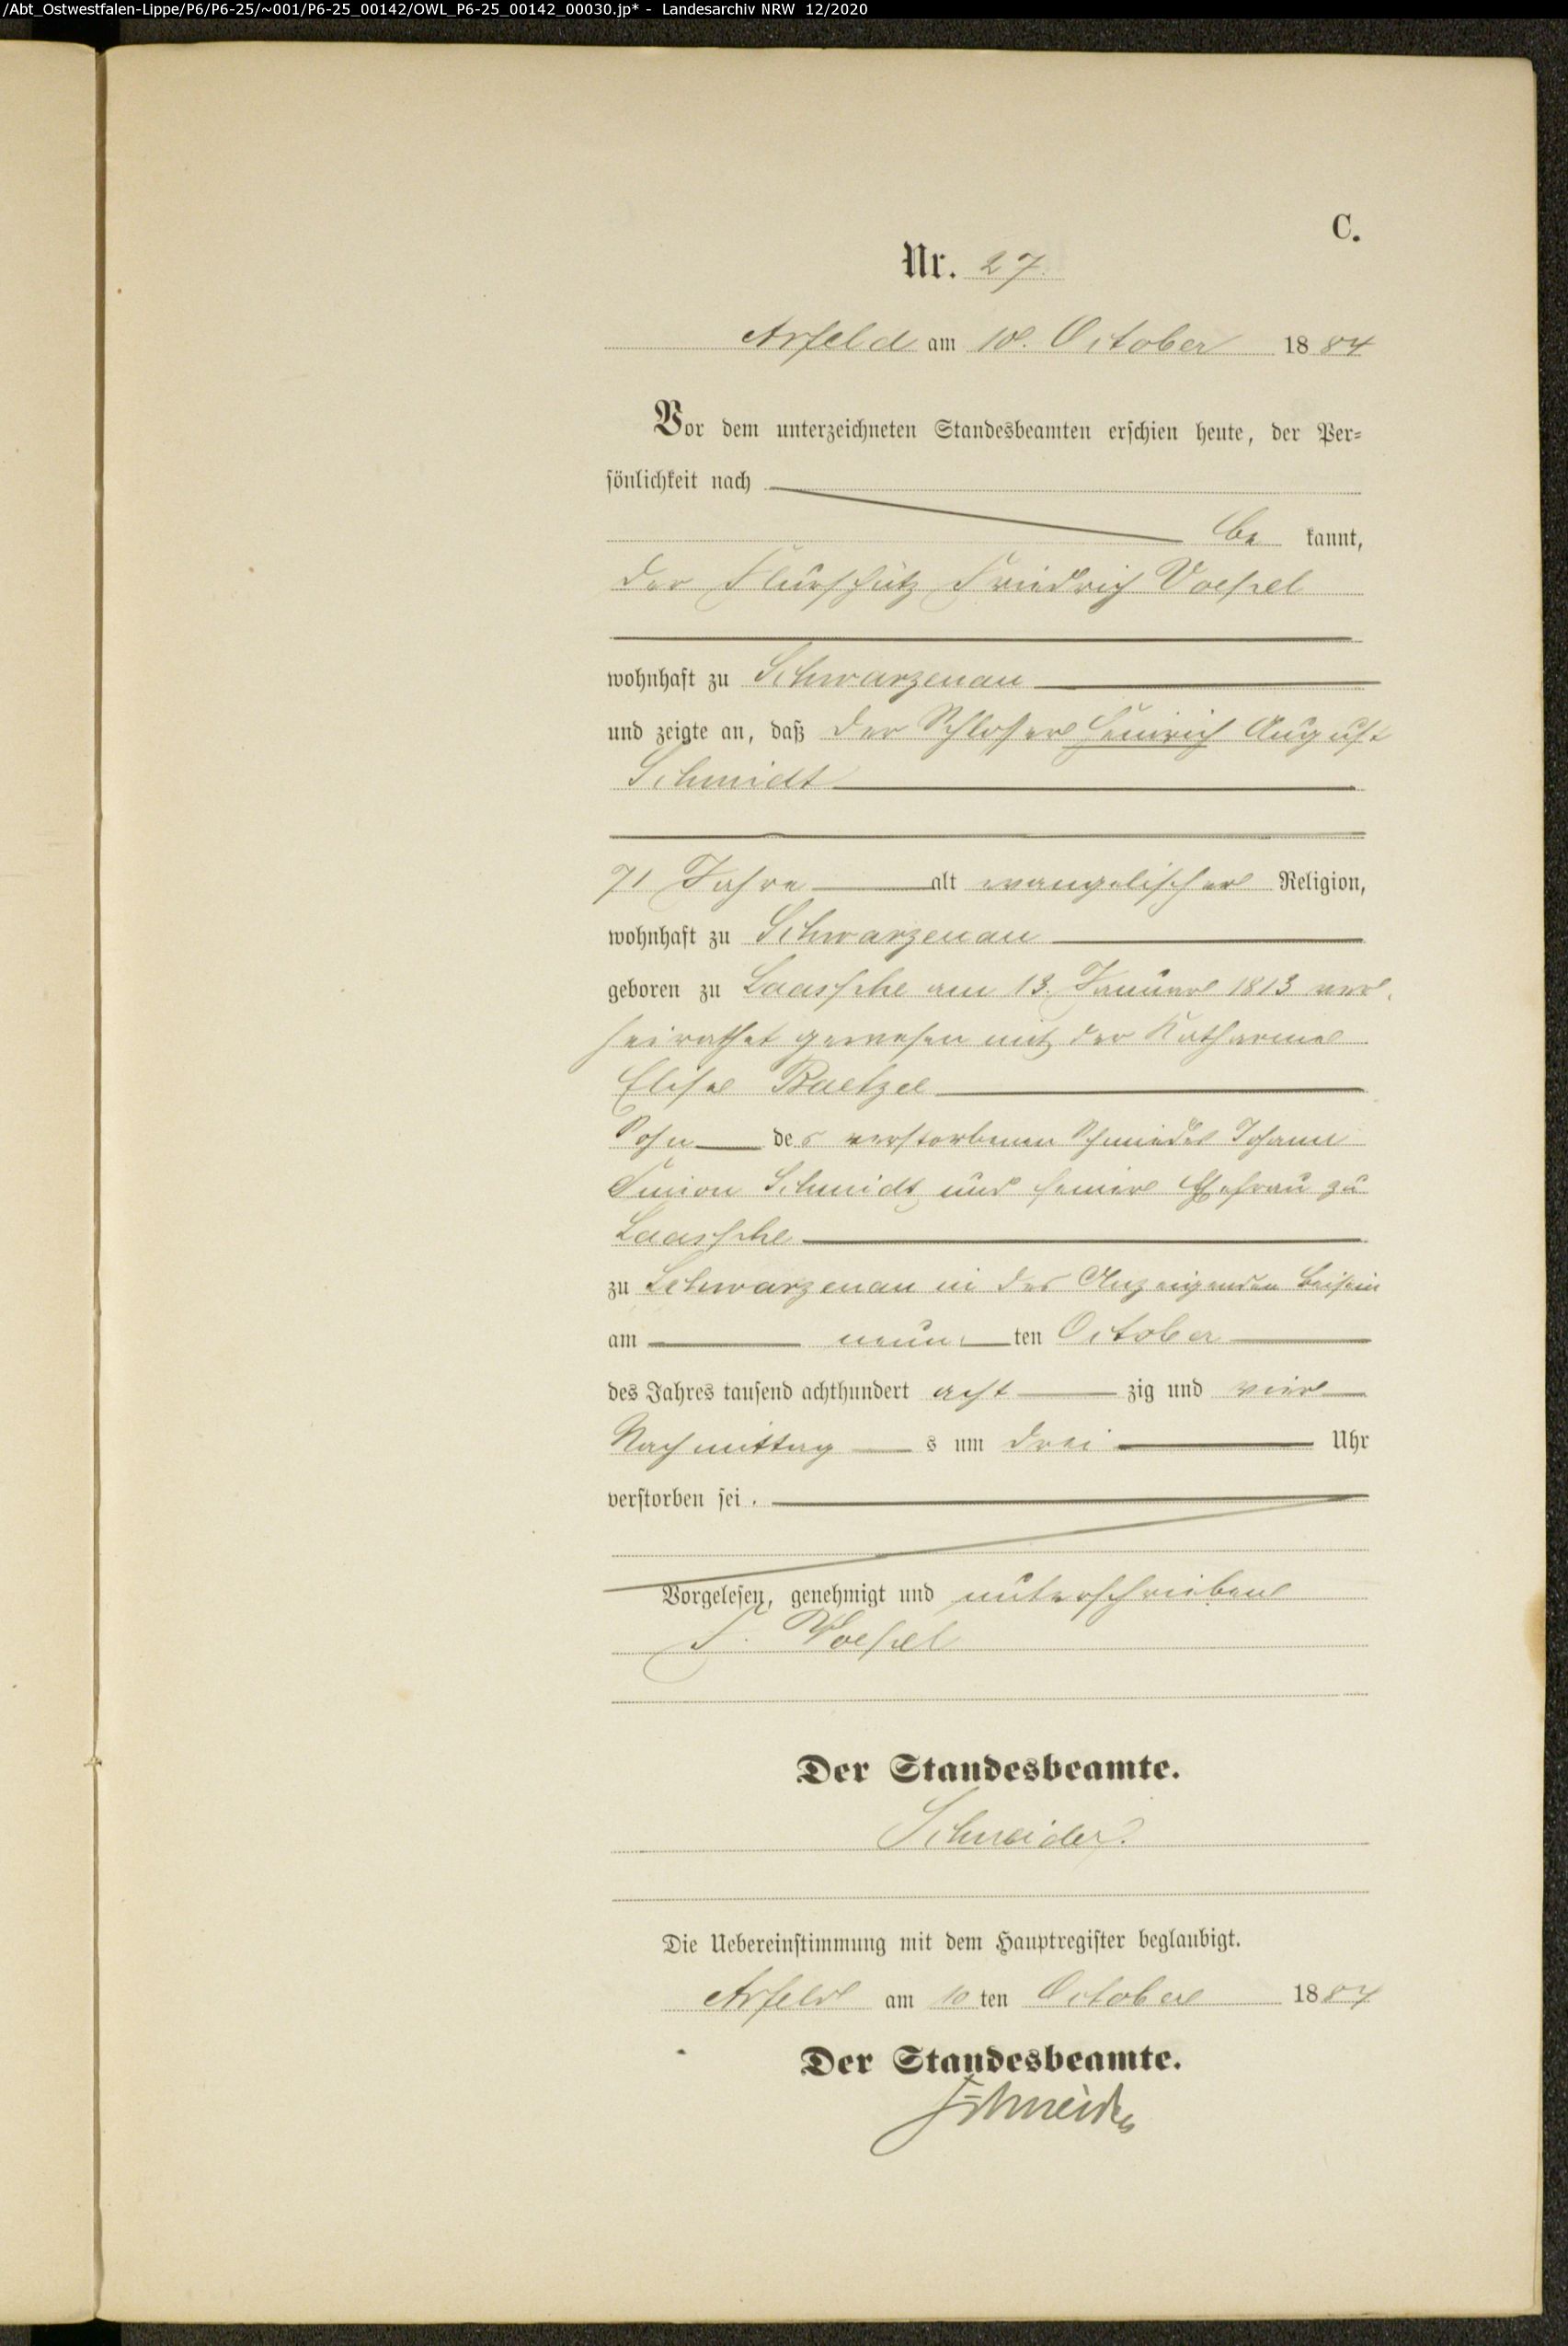 /Abt_Ostwestfalen-Lippe/P6/P6-25/~001/P6-25_00142/OWL_P6-25_00142_00030.jp* - Landesarchiv NRW 12/2020
C.
Nr. 27.
Arfeld am 10. October 1884
Vor dem unterzeichneten Standesbeamten erschien heute, der Per=
sönlichkeit nach
be kannt,
der Flurschütz Friedrich Voepel
wohnhaft zu Schwarzenau
und zeigte an, daß der Schlosser Heinrich August
Schmidt
71 Jahre alt evangelischer Religion,
wohnhaft zu Schwarzenau
geboren zu Laasphe am 13. Januar 1813 ver-
heirathet gewesen mit der Katharine
Elise Baetzel
Sohn des verstorbenen Schmiedes Johann
Simon Schmidt und seiner Ehefrau zu
Laasphe
zu Schwarzenau in des Anzeigenden Beisein
am neun ten October
des Jahres tausend achthundert acht zig und vier
Nachmittag s um drei Uhr
verstorben sei.
Vorgelesen, genehmigt und unterschrieben
F. Voepel
Der Standesbeamte.
Schneider
Die Uebereinstimmung mit dem Hauptregister beglaubigt.
Arfeld am 10 ten October 1884
Der Standesbeamte.
Schneider